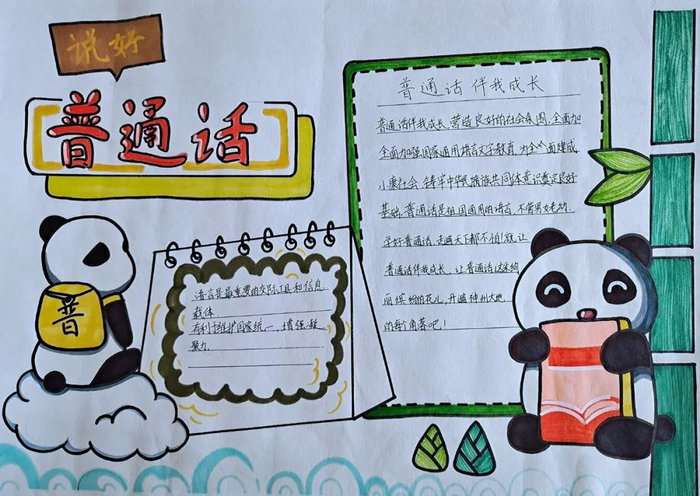 说好
普通话
普
语言是最重要的交际工具和信息
载体
有利于维护国家统一,增强凝
聚力
普通话伴我成长
普通话伴我成长,营造良好的社会氛围,全面加
全面加强国家通用语言文字教育,为全面建成
小康社会,铸牢中华民族共同体意识奠定良好
基础,普通话是祖国通用的语言,不管男女老幼,
学好普通话,走遍天下都不怕!就让
普通话伴我成长,让普通话这朵绚
丽缤纷的花儿,开遍神州大地
的每个角落吧!